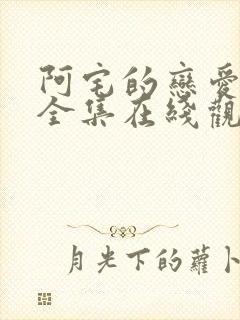 阿宅的戀愛
全集在綫觀
月光下的蘿卜